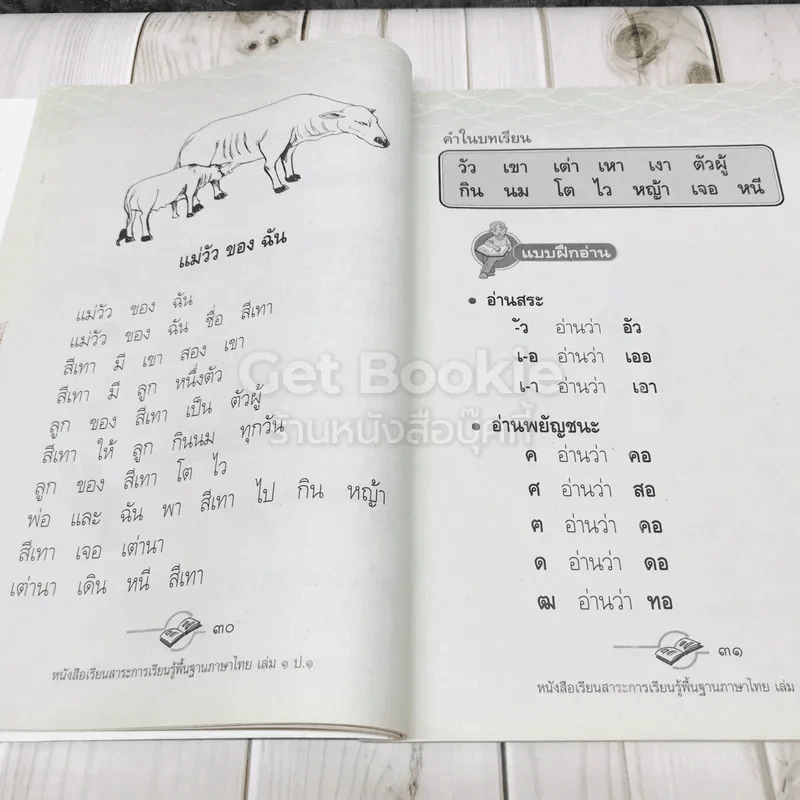 แม่วัว ของ ฉัน
แม่วัว ของ ฉัน
แม่วัว ของ ฉัน ชื่อ สีเทา
สีเทา มี เขา สอง เขา
สีเทา มี ลูก หนึ่งตัว
ลูก ของ สีเทา เป็น ตัวผู้
สีเทา ให้ ลูก กินนม ทุกวัน
ลูก ของ สีเทา โต ไว
พ่อ และ ฉัน พา สีเทา ไป กิน หญ้า
สีเทา เจอ เต่านา
เต่านา เดิน หนี สีเทา
๓๐
หนังสือเรียนสาระการเรียนรู้พื้นฐานภาษาไทย เล่ม ๑ ป.๑
คำในบทเรียน
วัว เขา เต่า เหา เงา ตัวผู้
กิน นม โต ไว หญ้า เจอ หนี
แบบฝึกอ่าน
• อ่านสระ
-ัว อ่านว่า อัว
เ-อ อ่านว่า เออ
เ-า อ่านว่า เอา
• อ่านพยัญชนะ
ค อ่านว่า คอ
ศ อ่านว่า สอ
ฅ อ่านว่า คอ
ด อ่านว่า ดอ
ฒ อ่านว่า ทอ
๓๑
หนังสือเรียนสาระการเรียนรู้พื้นฐานภาษาไทย เล่ม
Get Bookie
ร้านหนังสือบุ๊คกี้